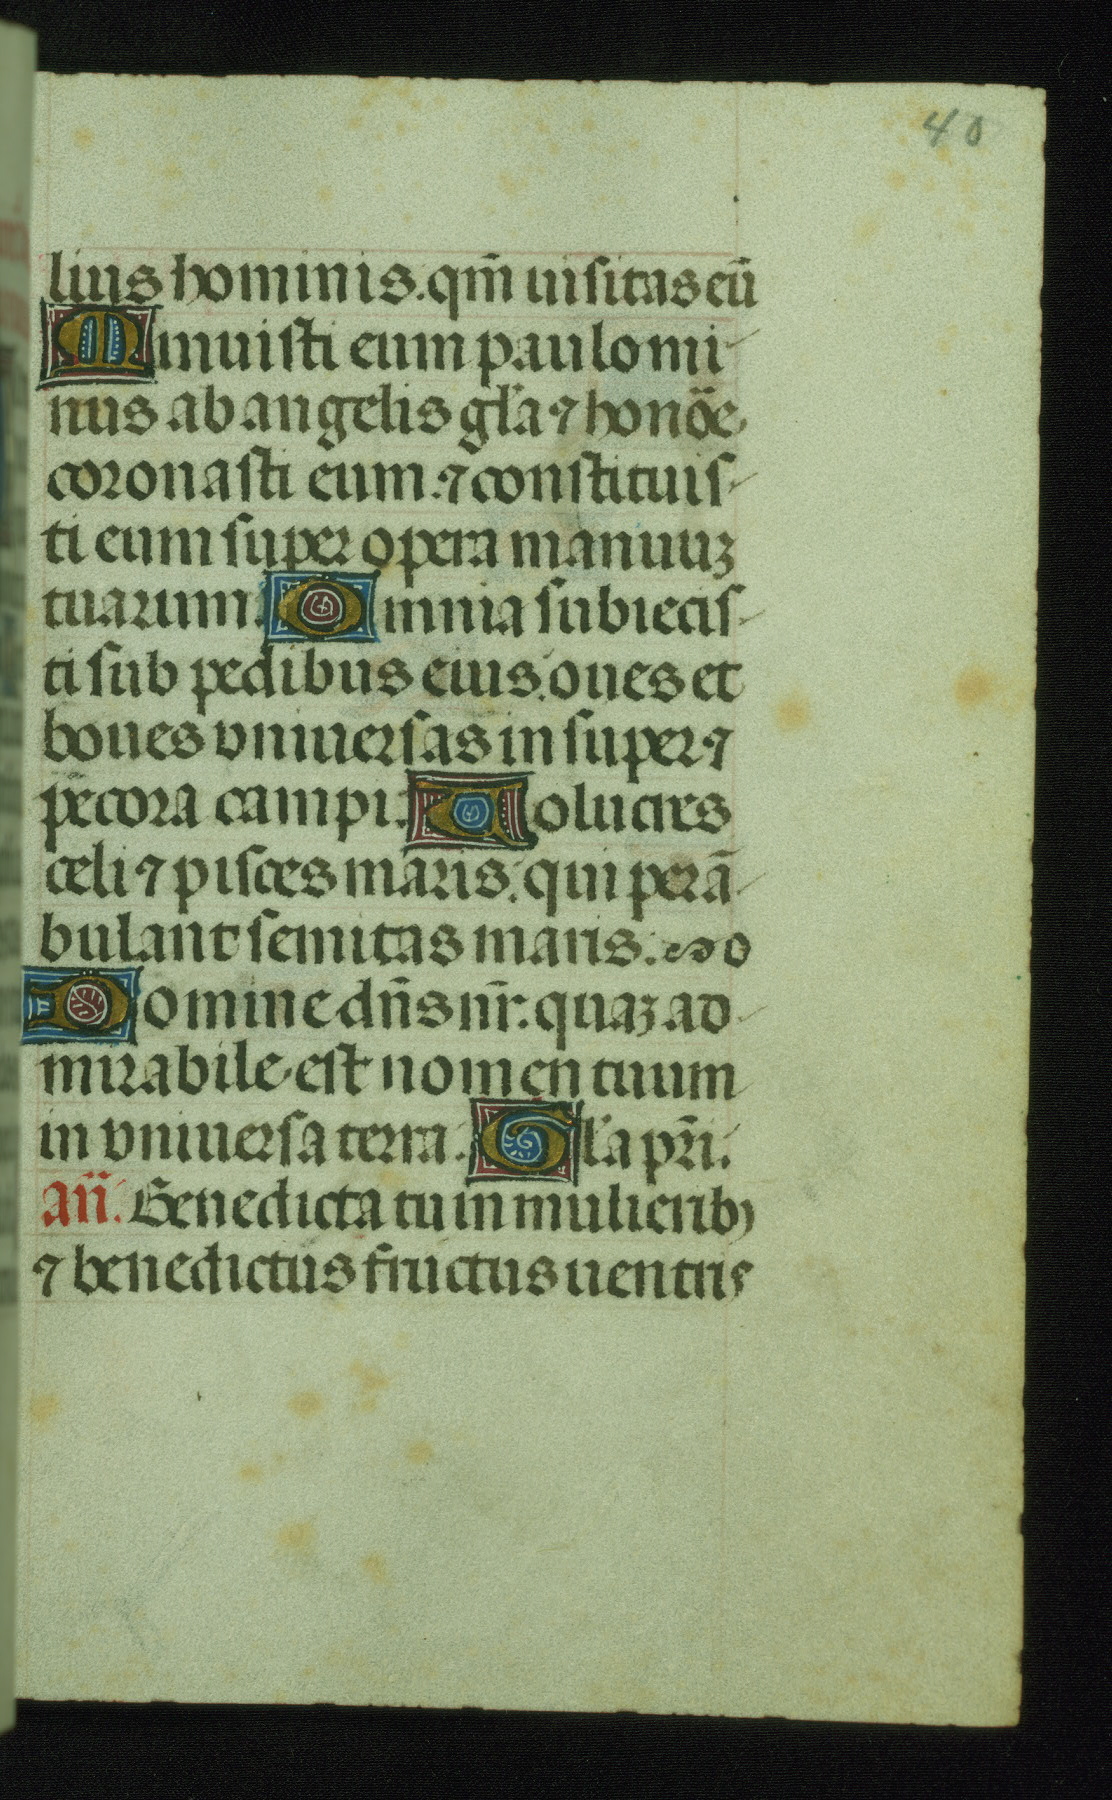 40
lius hominis. qm̄ uisitas eū
Minuisti eum paulo mi-
nus ab angelis gl̄a ⁊ honōe
coronasti eum: ⁊ constituis-
ti eum super opera manuuꝫ
tuarum. Omnia subiecis-
ti sub pedibus eius: oues et
boues vniuersas insuper ⁊
pecora campi. Uolucres
celi ⁊ pisces maris: qui perā-
bulant semitas maris. o
Domine dn̄s nr̄. quaꝫ ad-
mirabile est nomen tuum
in vniuersa terra. Gl̄a pr̄i.
Añ. Benedicta tu in mulieribꝫ
⁊ benedictus fructus uentris